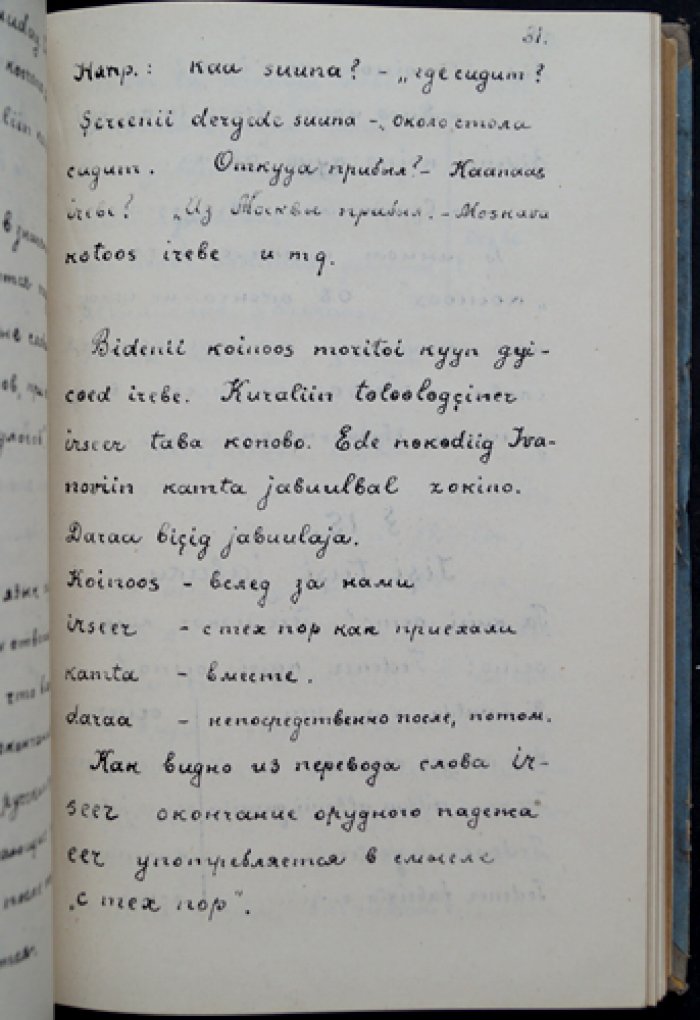 31.
Напр.: kaa suuna? - „где сидит?
Şereenii dergede suuna -„около стола
сидит. Откууа прибыл? - Kaanaas
irebe? „Из Москвы прибыл. - Moskava
kotoos irebe и тд.
Bidenii koinoos moritoi kyyn gyi-
ceed irebe. Kuraliin toloologçiner
irseer taba konobo. Ede nokodiig Iva-
noviin kamta jabuulbal zokino.
Daraa biçig jabuulaja.
Koinoos - вслед за нами
irseer - с тех пор как приехали
kamta - вместе.
daraa - непосредственно после, потом.
Как видно из перевода слова ir-
seer окончание орудного падежа
eer употребляется в смысле
„с тех пор".